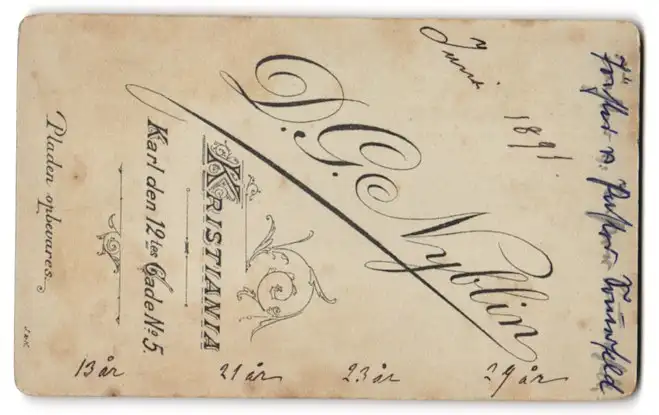 Juni 1891.
D. G. Nyblin
KRISTIANIA
Karl den 12tes Gade No. 5.
Pladen opbevares.
13 år 21 år 23 år 29 år